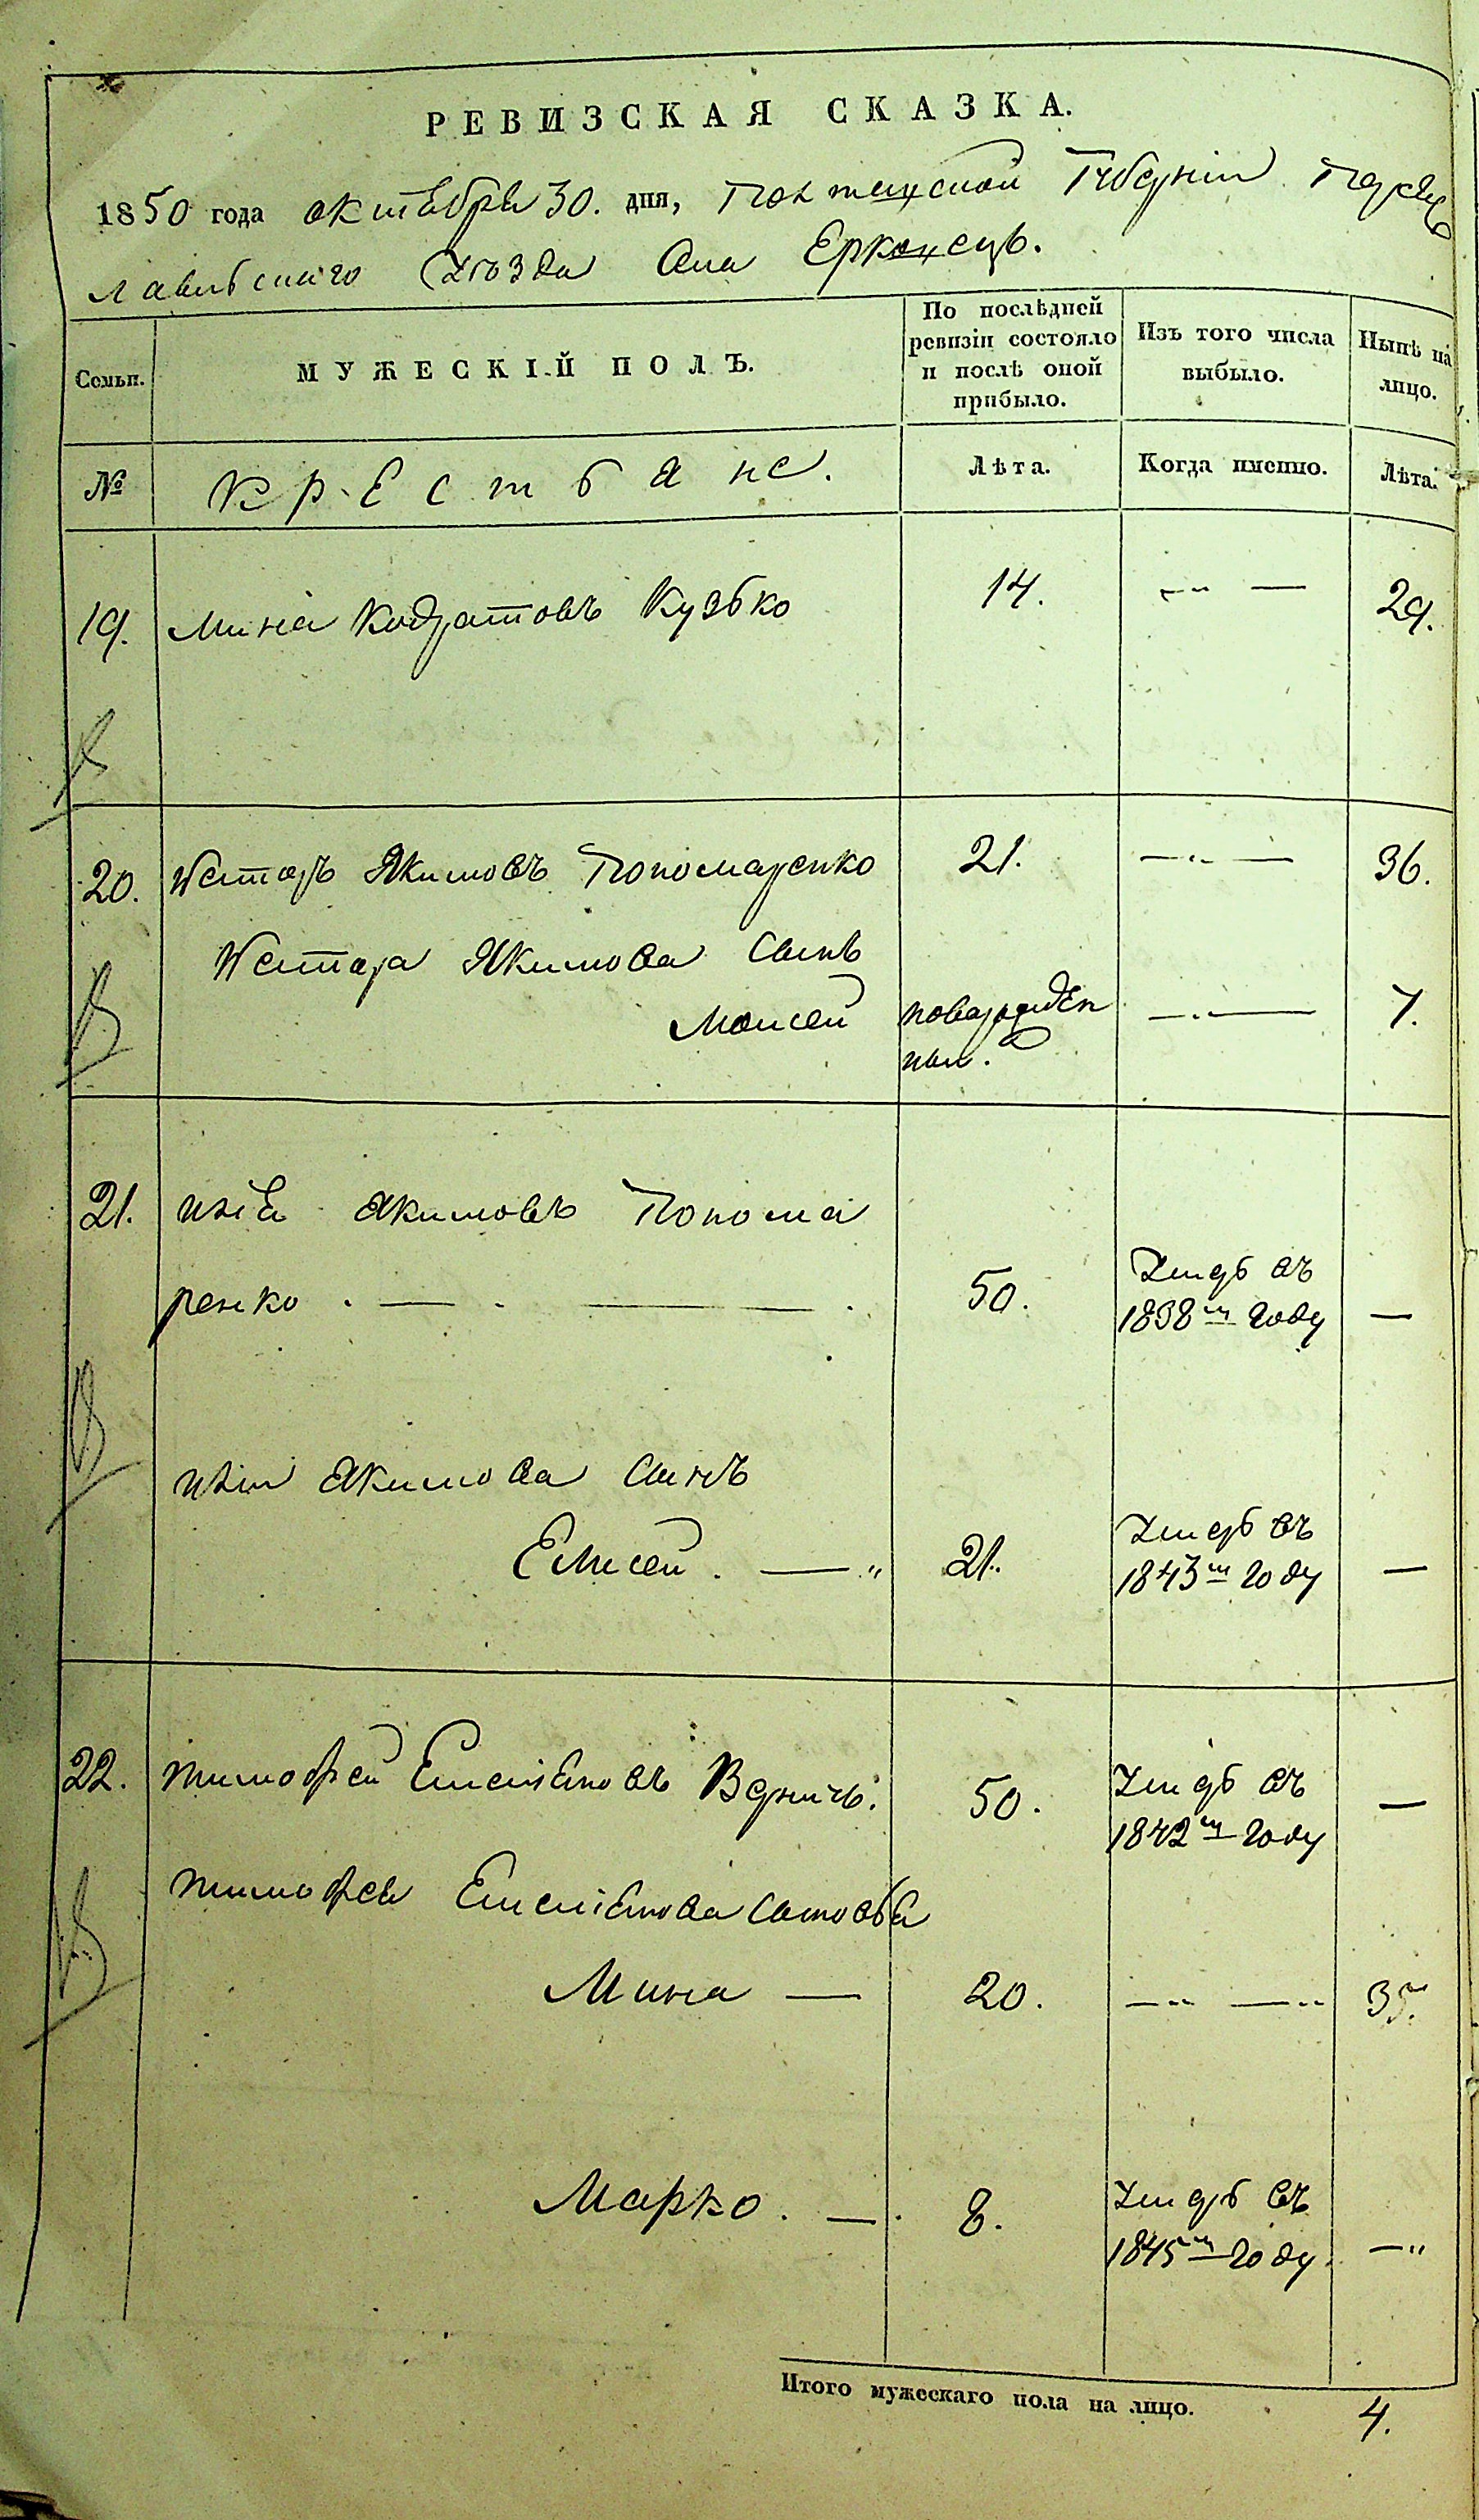 РЕВИЗСКАЯ СКАЗКА.
1850 года октября 30. дня, Полтавской Губерніи Переяс
лавьскаго Уѣзда Села Ерковецъ.
Семьи.
МУЖЕСКІЙ ПОЛЪ.
По послѣдней
ревизіи состояло
и послѣ оной
прибыло.
Изъ того числа
выбыло.
Нынѣ на
лицо.
№
Крестьяне.
Лѣта.
Когда именно.
Лѣта.
19. Мина Кодратовъ Кузько 14. — 29.
20. Нестеръ Якимовъ Пономаренко 21. — 36.
Нестера Якимова Сынъ
Моисей новорожден — 7.
ный.
21. Якимовъ Понома
ренко . — . — . 50. Умеръ въ
1838м году —
Якимова Сынъ
Елисей . — 21. Умеръ въ
1843м году —
22. Тимофей Емеліяновъ 50. Умеръ въ
1842м году —
Тимофея Емеліянова Сыновья
Мина — 20. — — 35.
Марко. — . 8. Умеръ въ
1845м году. —
Итого мужескаго пола на лицо. 4.